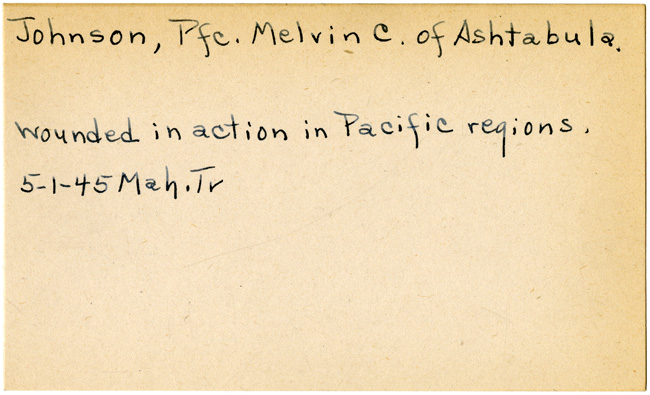 Johnson, Pfc. Melvin C. of Ashtabula.
wounded in action in Pacific regions.
5-1-45 Mah. Tr